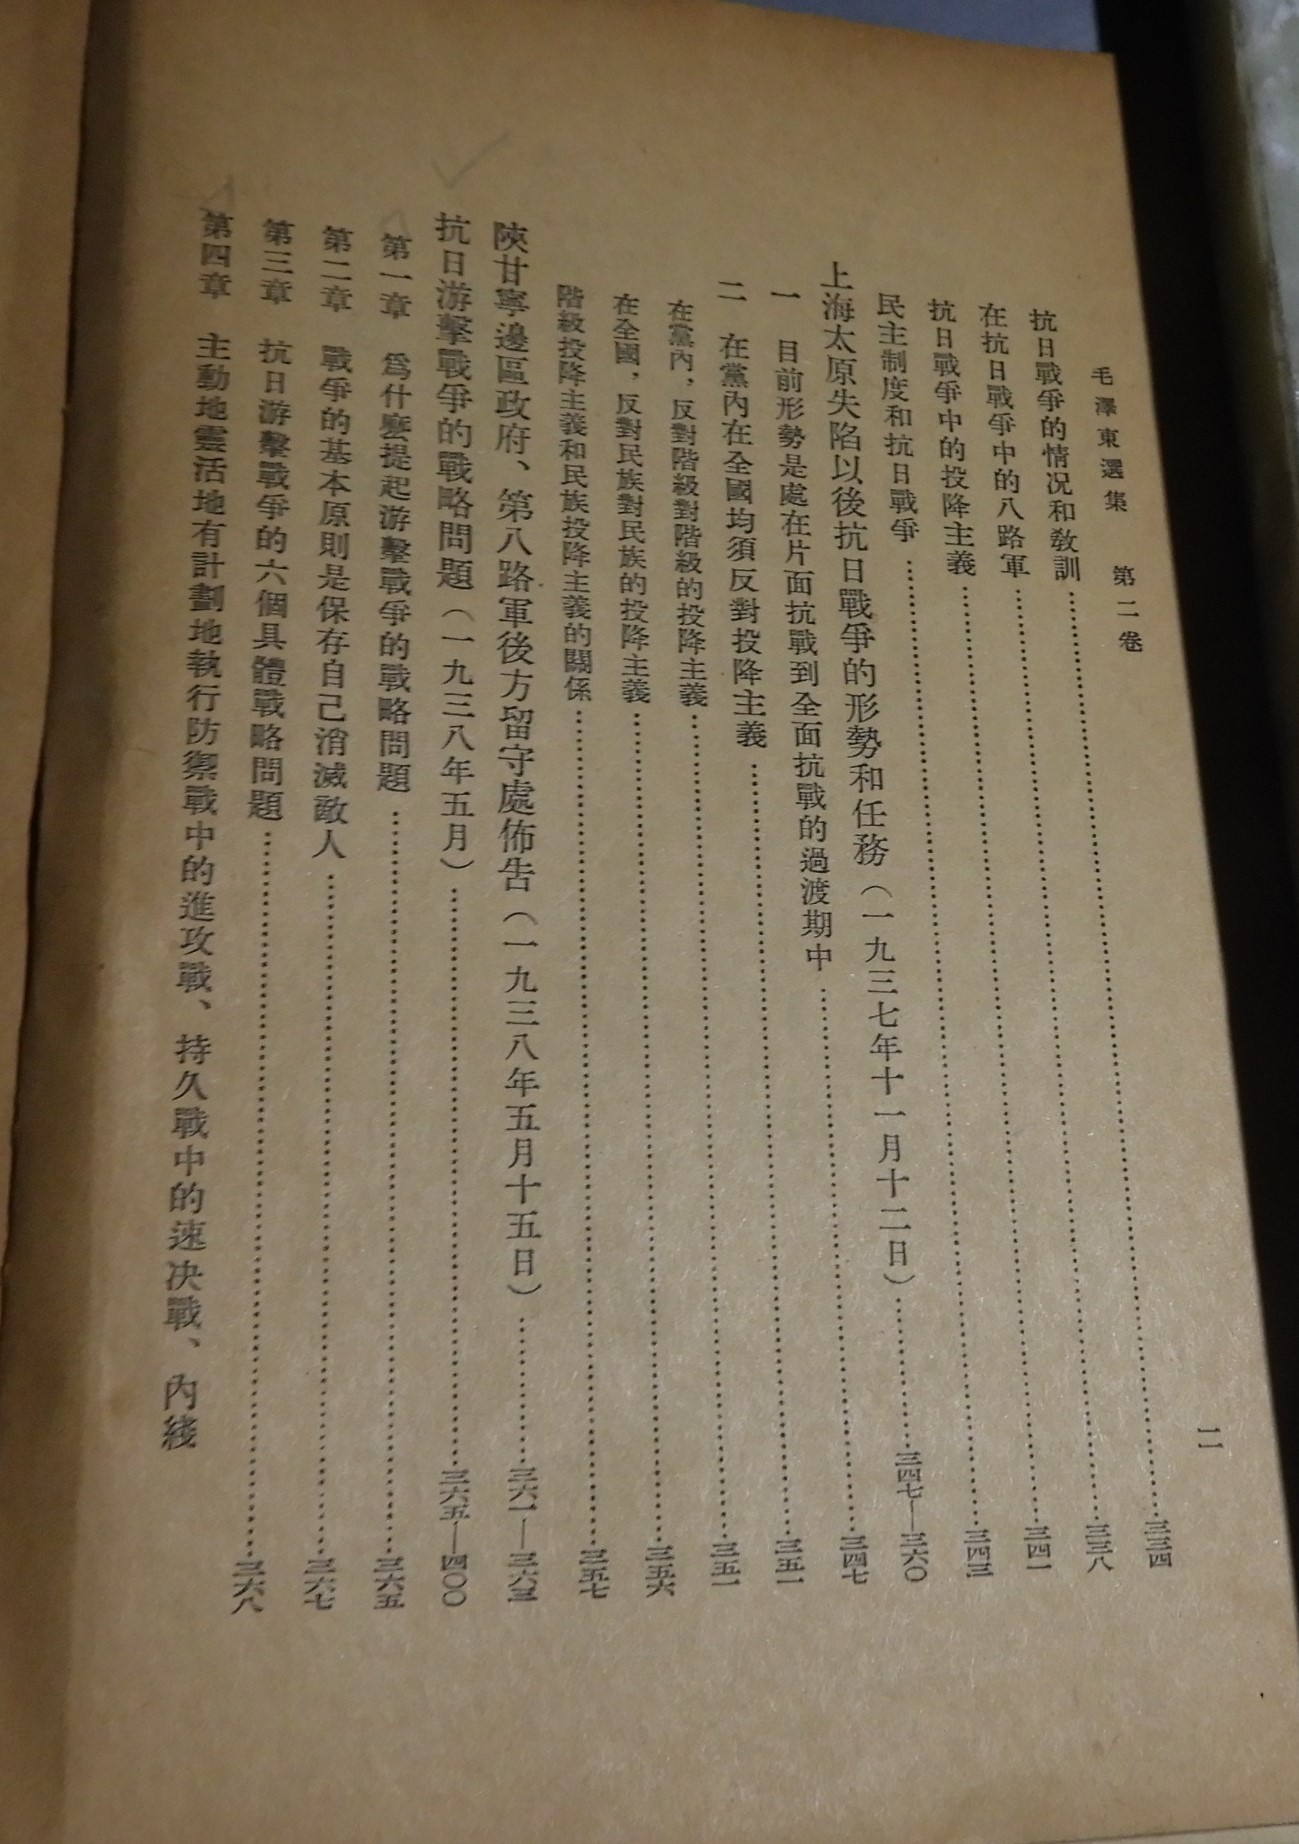 毛澤東選集　第二卷
二
抗日戰爭的情況和敎訓……三三四
在抗日戰爭中的八路軍……三三八
抗日戰爭中的投降主義……三四一
民主制度和抗日戰爭……三四三
上海太原失陷以後抗日戰爭的形勢和任務（一九三七年十一月十二日）……三四七—三六〇
一　目前形勢是處在片面抗戰到全面抗戰的過渡期中……三四七
二　在黨內在全國均須反對投降主義……三五一
在黨內，反對階級對階級的投降主義……三五一
在全國，反對民族對民族的投降主義……三五六
階級投降主義和民族投降主義的關係……三五七
陝甘寧邊區政府、第八路軍後方留守處佈告（一九三八年五月十五日）……三六一—三六三
抗日游擊戰爭的戰略問題（一九三八年五月）……三六五—四〇〇
第一章　爲什麽提起游擊戰爭的戰略問題……三六五
第二章　戰爭的基本原則是保存自己消滅敵人……三六七
第三章　抗日游擊戰爭的六個具體戰略問題……三六八
第四章　主動地靈活地有計劃地執行防禦戰中的進攻戰、持久戰中的速决戰、內綫